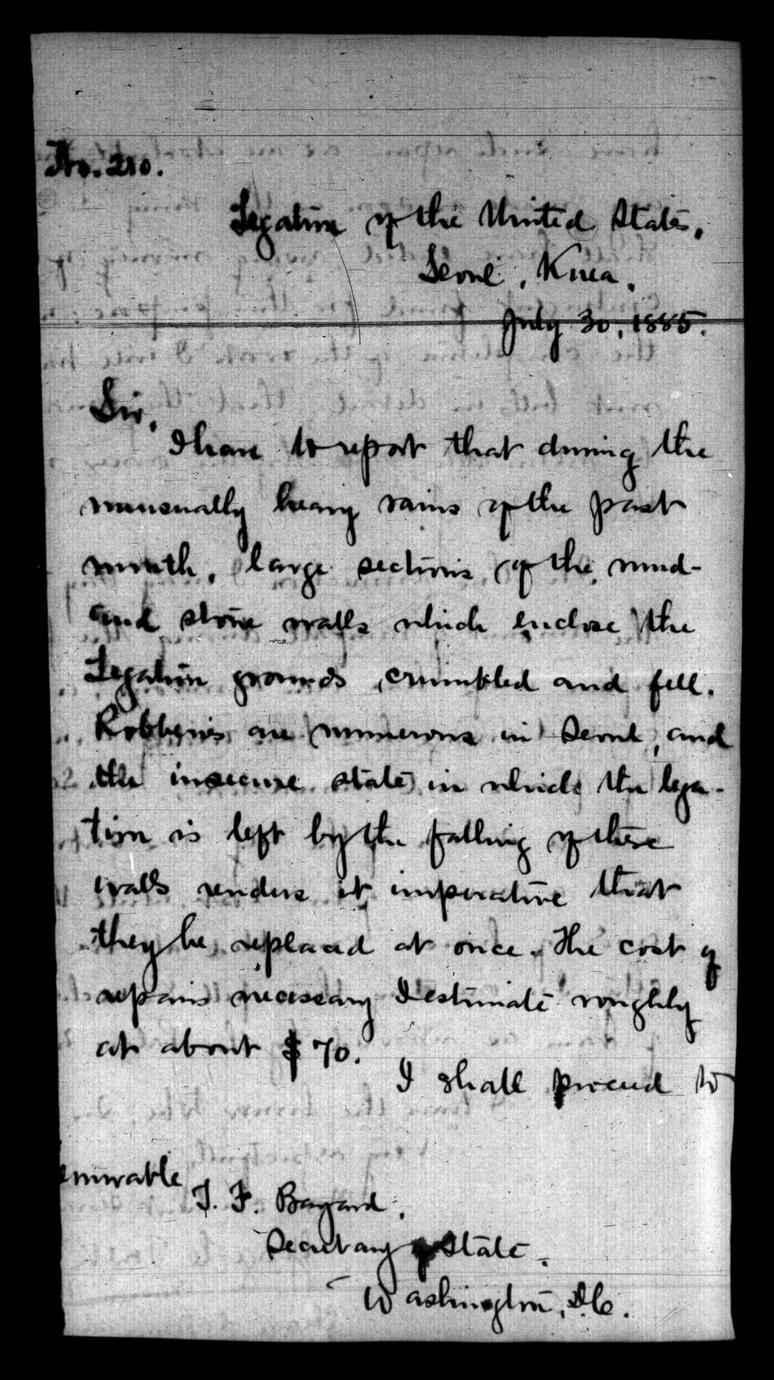 No. 210.
Legation of the United States,
Seoul, Korea,
July 30, 1885.
Sir,
I have to report that during the
unusually heavy rains of the past
month, large sections of the mud-
and stone walls which enclose the
Legation grounds, crumbled and fell.
Robberies are numerous in Seoul, and
the insecure state in which the lega-
tion is left by the falling of these
walls renders it imperative that
they be replaced at once. The cost of
repairs necessary I estimate roughly
at about $70.
I shall proceed to
T. F. Bayard,
Secretary of State,
Washington, D.C.